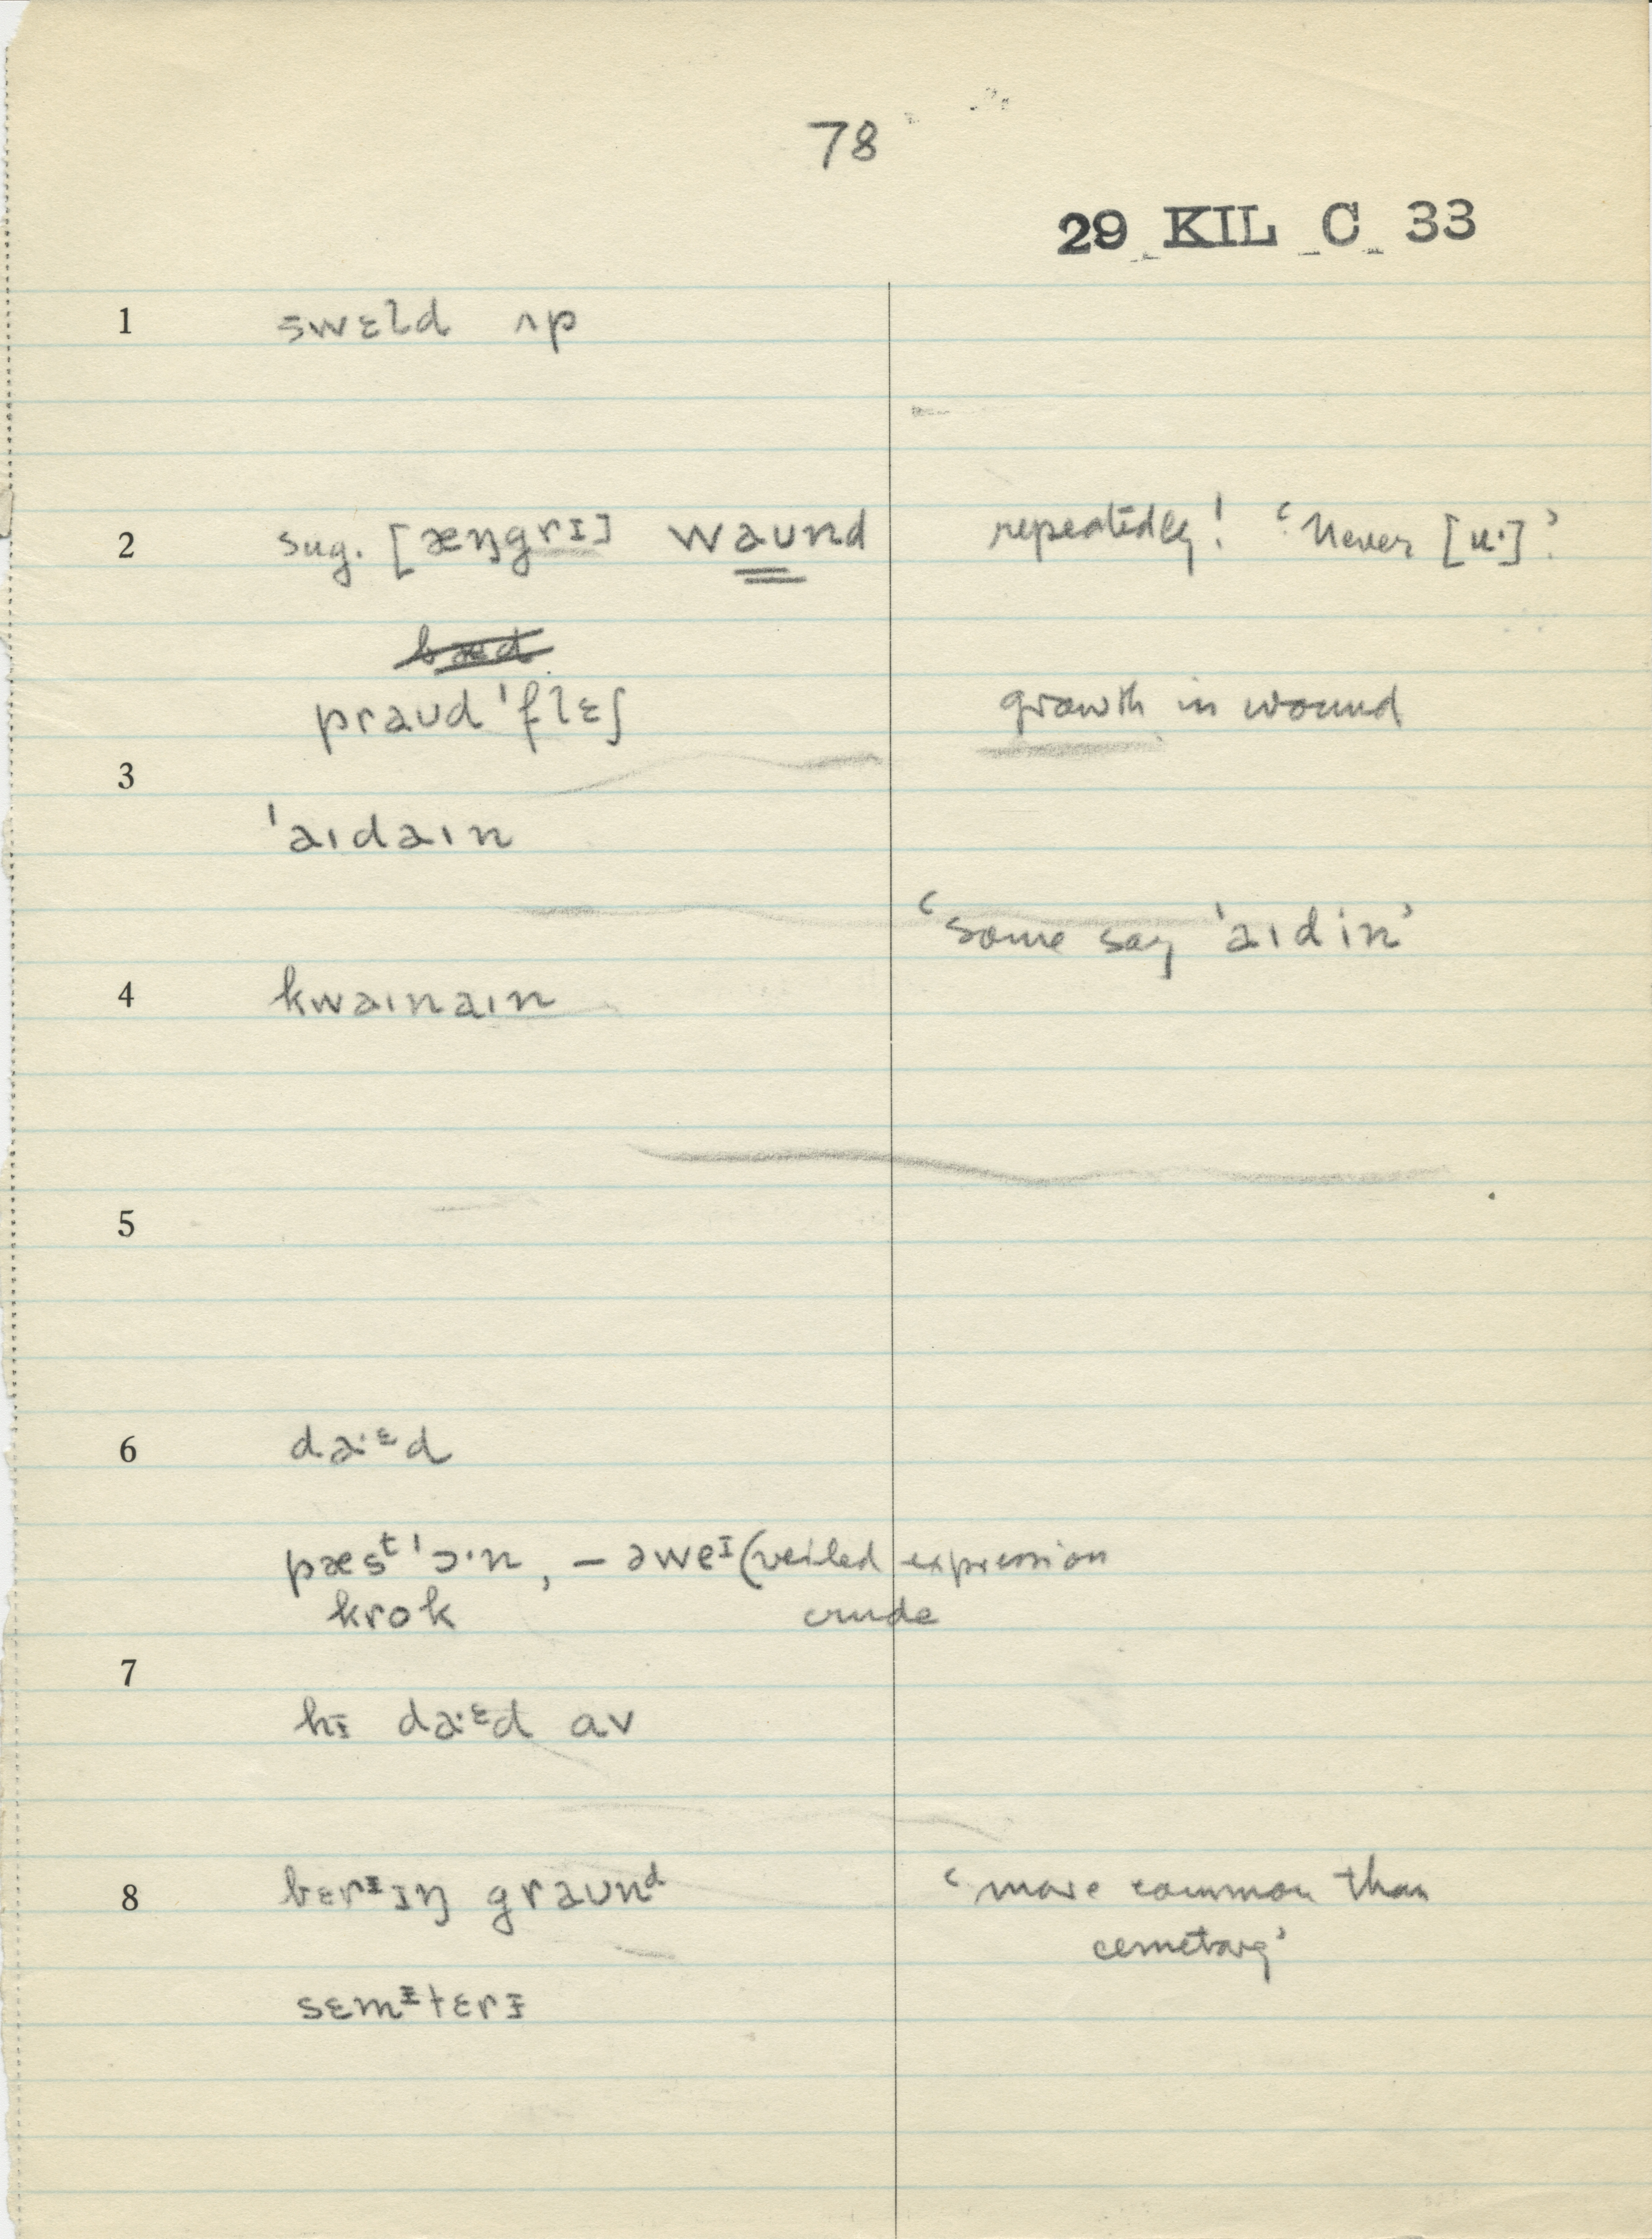 78
29 KIL C 33
1 swɛld ʌp
2 sug. [æŋgrɪ] waʊnd repeatedly! ‘Never [u·]’
bæd
praʊd ˈflɛʃ growth in wound
3
ˈaɪdaɪn
‘Some say ˈaɪdin’
4 kwaɪnaɪn
5
6 da·ᵋd
pæsᵗ ˈɔ·n, – əweᶦ (veiled expression
krok crude
7
hɪ da·ᵋd əv
8 bɛrᶦɪŋ graʊnᵈ ‘more common than
cemetary’
sɛmᶦtɛrɪ